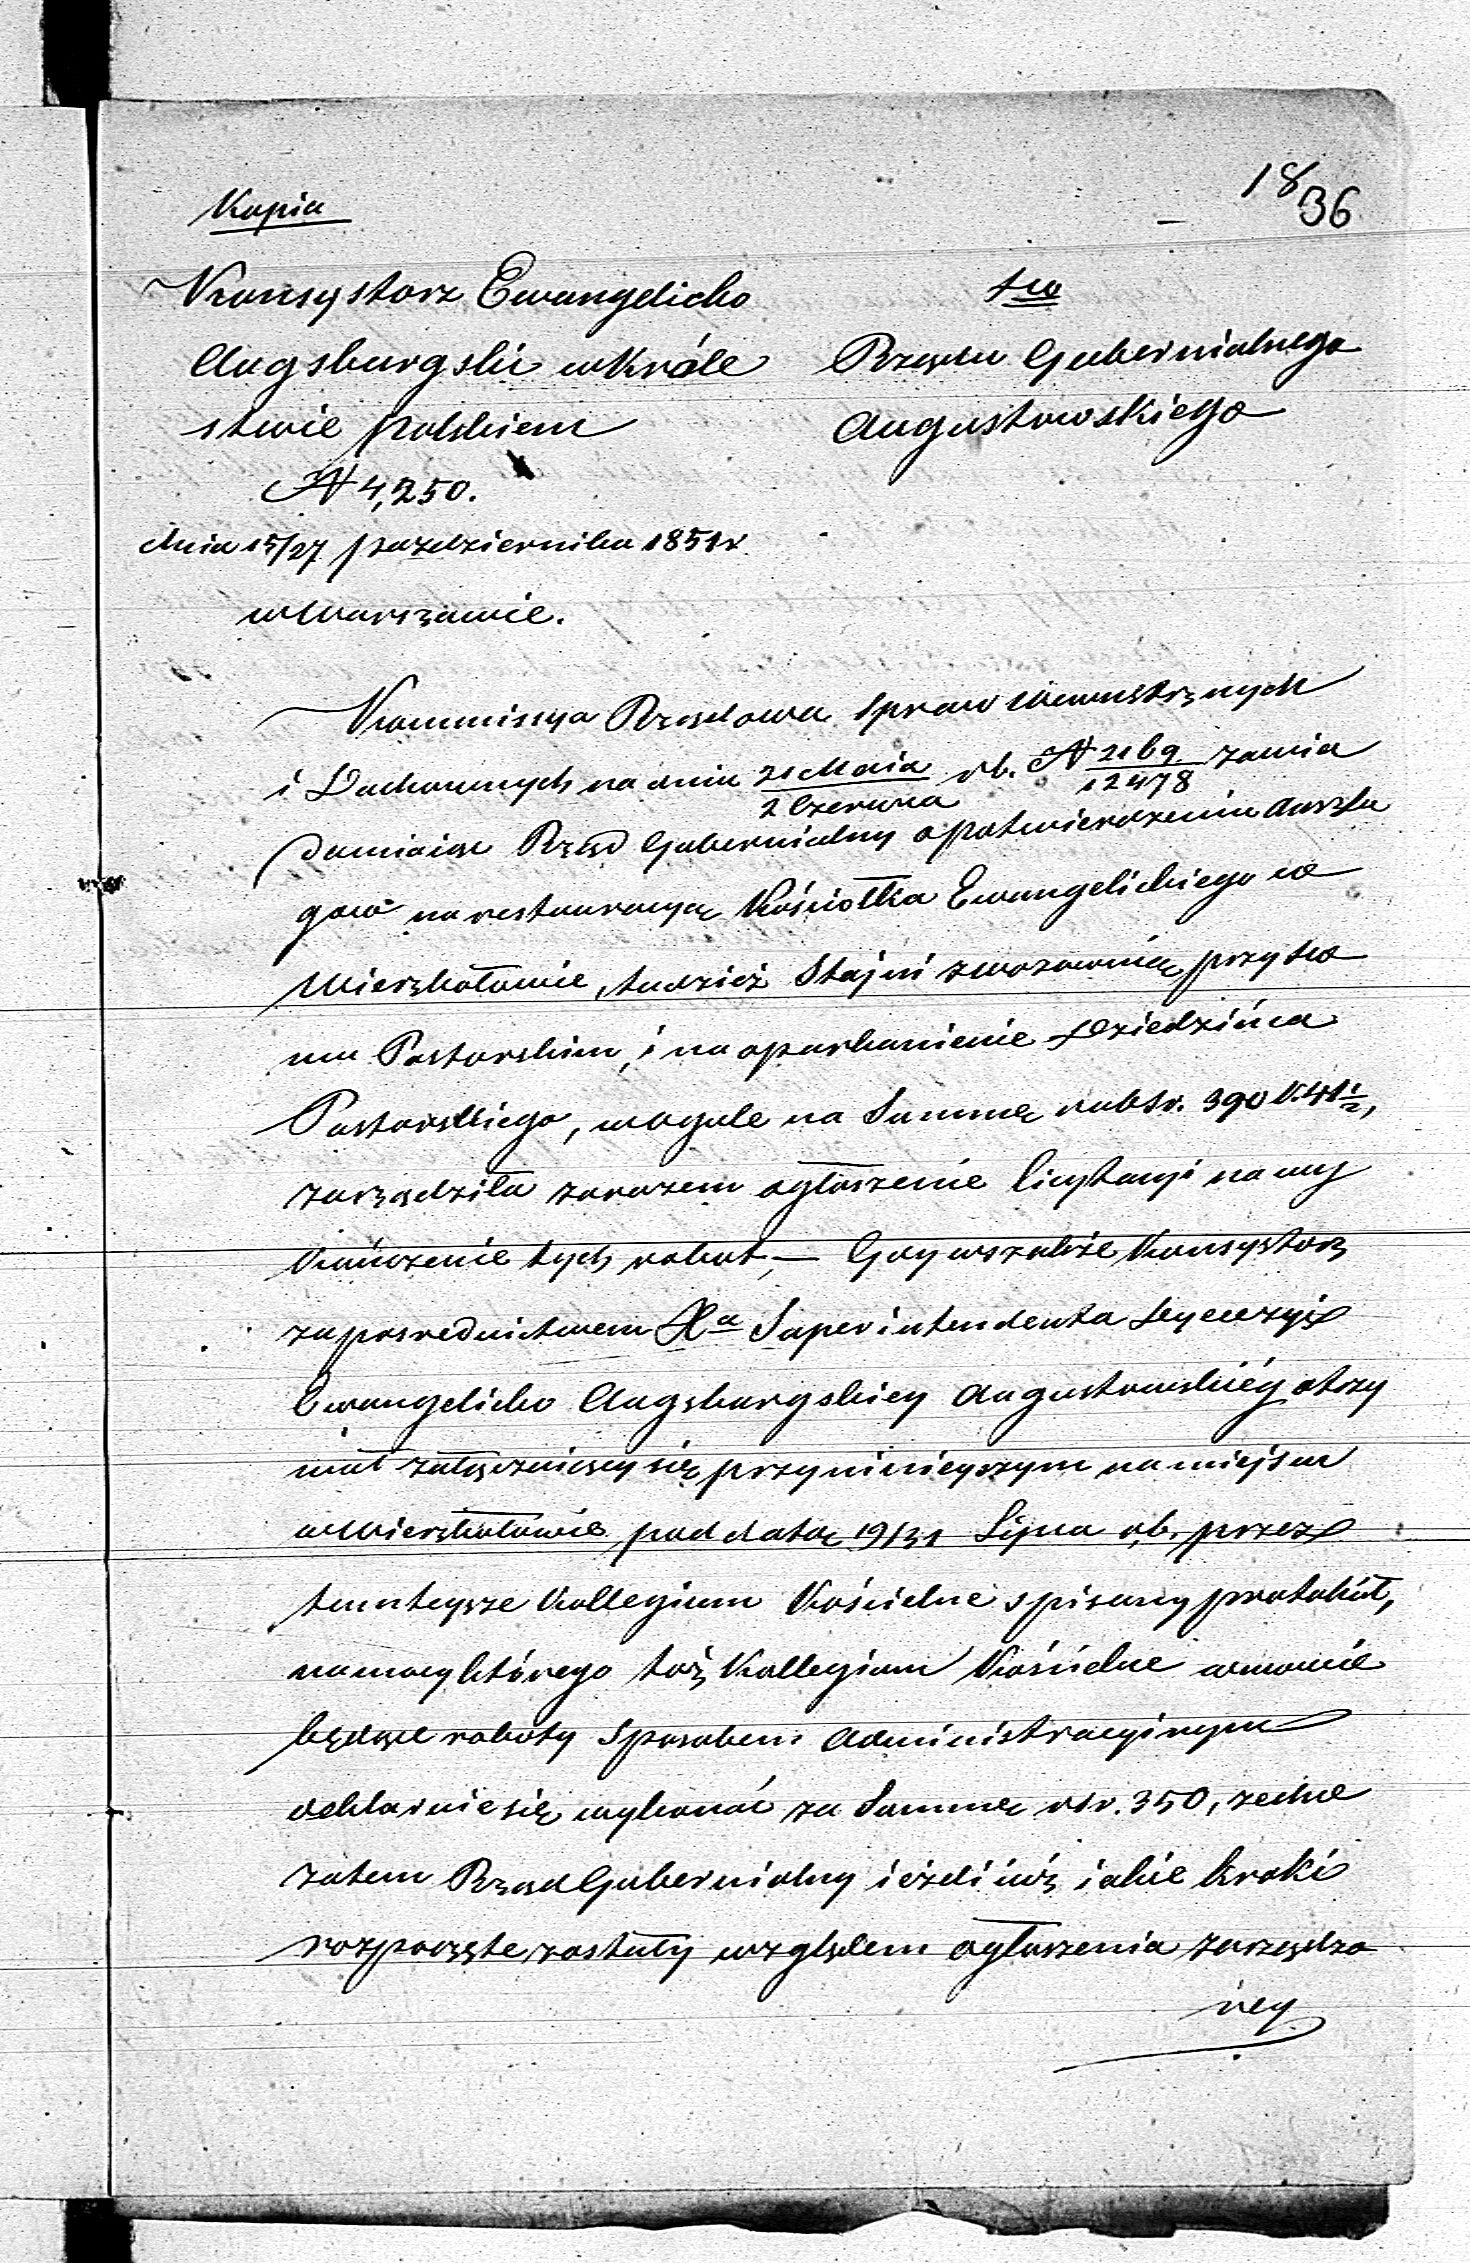 18/36
Kopia
Konsystorz Ewangelicko
Augsburgski w Króle
stwie polskiem
N 4,250.
dnia 15/27 października 1851 r.
w Warszawie.
Do
Rządu Gubernialnego
Augustowskiego
Kommissya Rządowa Spraw Wewnętrznych
i Duchownych na dniu 21 Maia / 2 Czerwca rb. N 2169 / 12478 zawia
damiaiąc Rząd Gubernialny o potwierdzeniu Anszla
gów na restauracyą Kościołka Ewangelickiego w
Wierzbołowie, tudzież Stajni z wozownią przy Do
mu Pastorskim, i na oparkanienie Dziedzińca
Pastorskiego, w ogule na Summę rubsr. 390 k. 41 1/2,
zarządziła zarazem ogłoszenie licytacyi na wy
kończenie tych robot, — Gdy wszakże Konsystorz
za posrednictwem Xa Superintendenta Dyecezyi
Ewangelicko Augsburgskiey Augustowskiéy otrzy
mał załączaiący się przy ninieyszym na miejscu
w Wierzbołowie pod datą 19/31 Lipca rb. przez
tamteysze Kollegium Kościelne spisany protokół,
na mocy którego toż Kollegium Kościelne w mowie
będące roboty sposobem administracyinym
deklaruie się wykonać za Summę rsr. 350, zechce
zatem Rząd Gubernialny ieżeli iuż iakie kroki
rozpoczęte zostały względem ogłoszenia zarządzo
ney